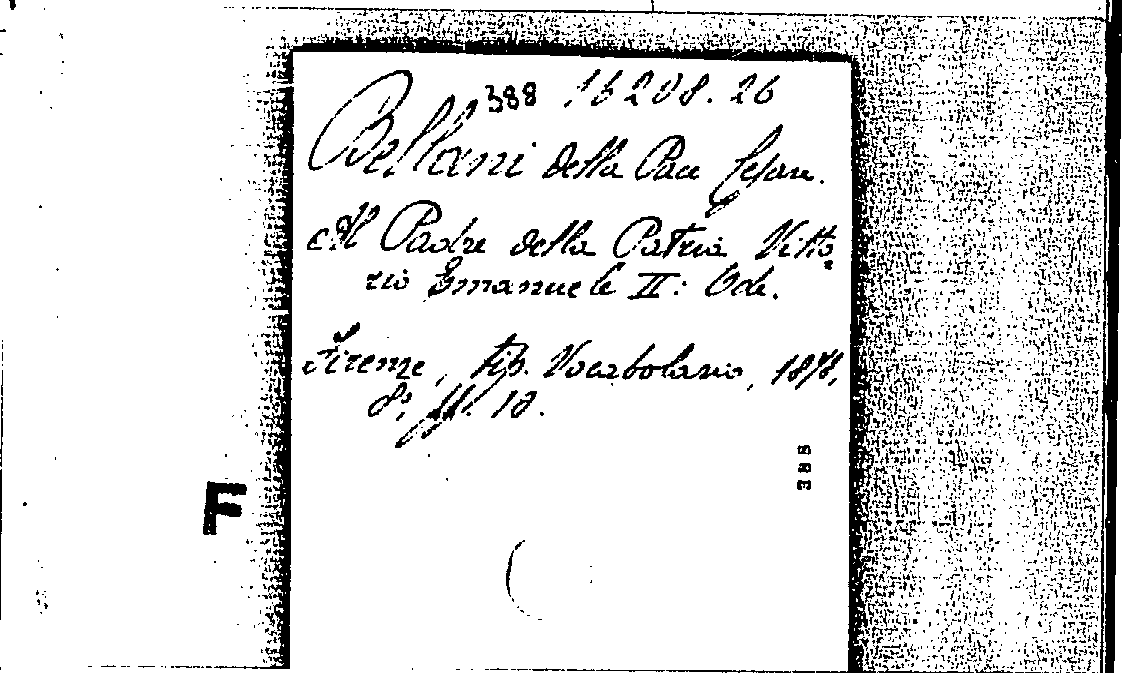 388 .16208.26
Bellani della Pace Cesare.
Al Padre della Patria Vitto
rio Emanuele II: Ode.
Firenze, tip. Vocabolario, 1878,
8°, pp. 18.
388
F